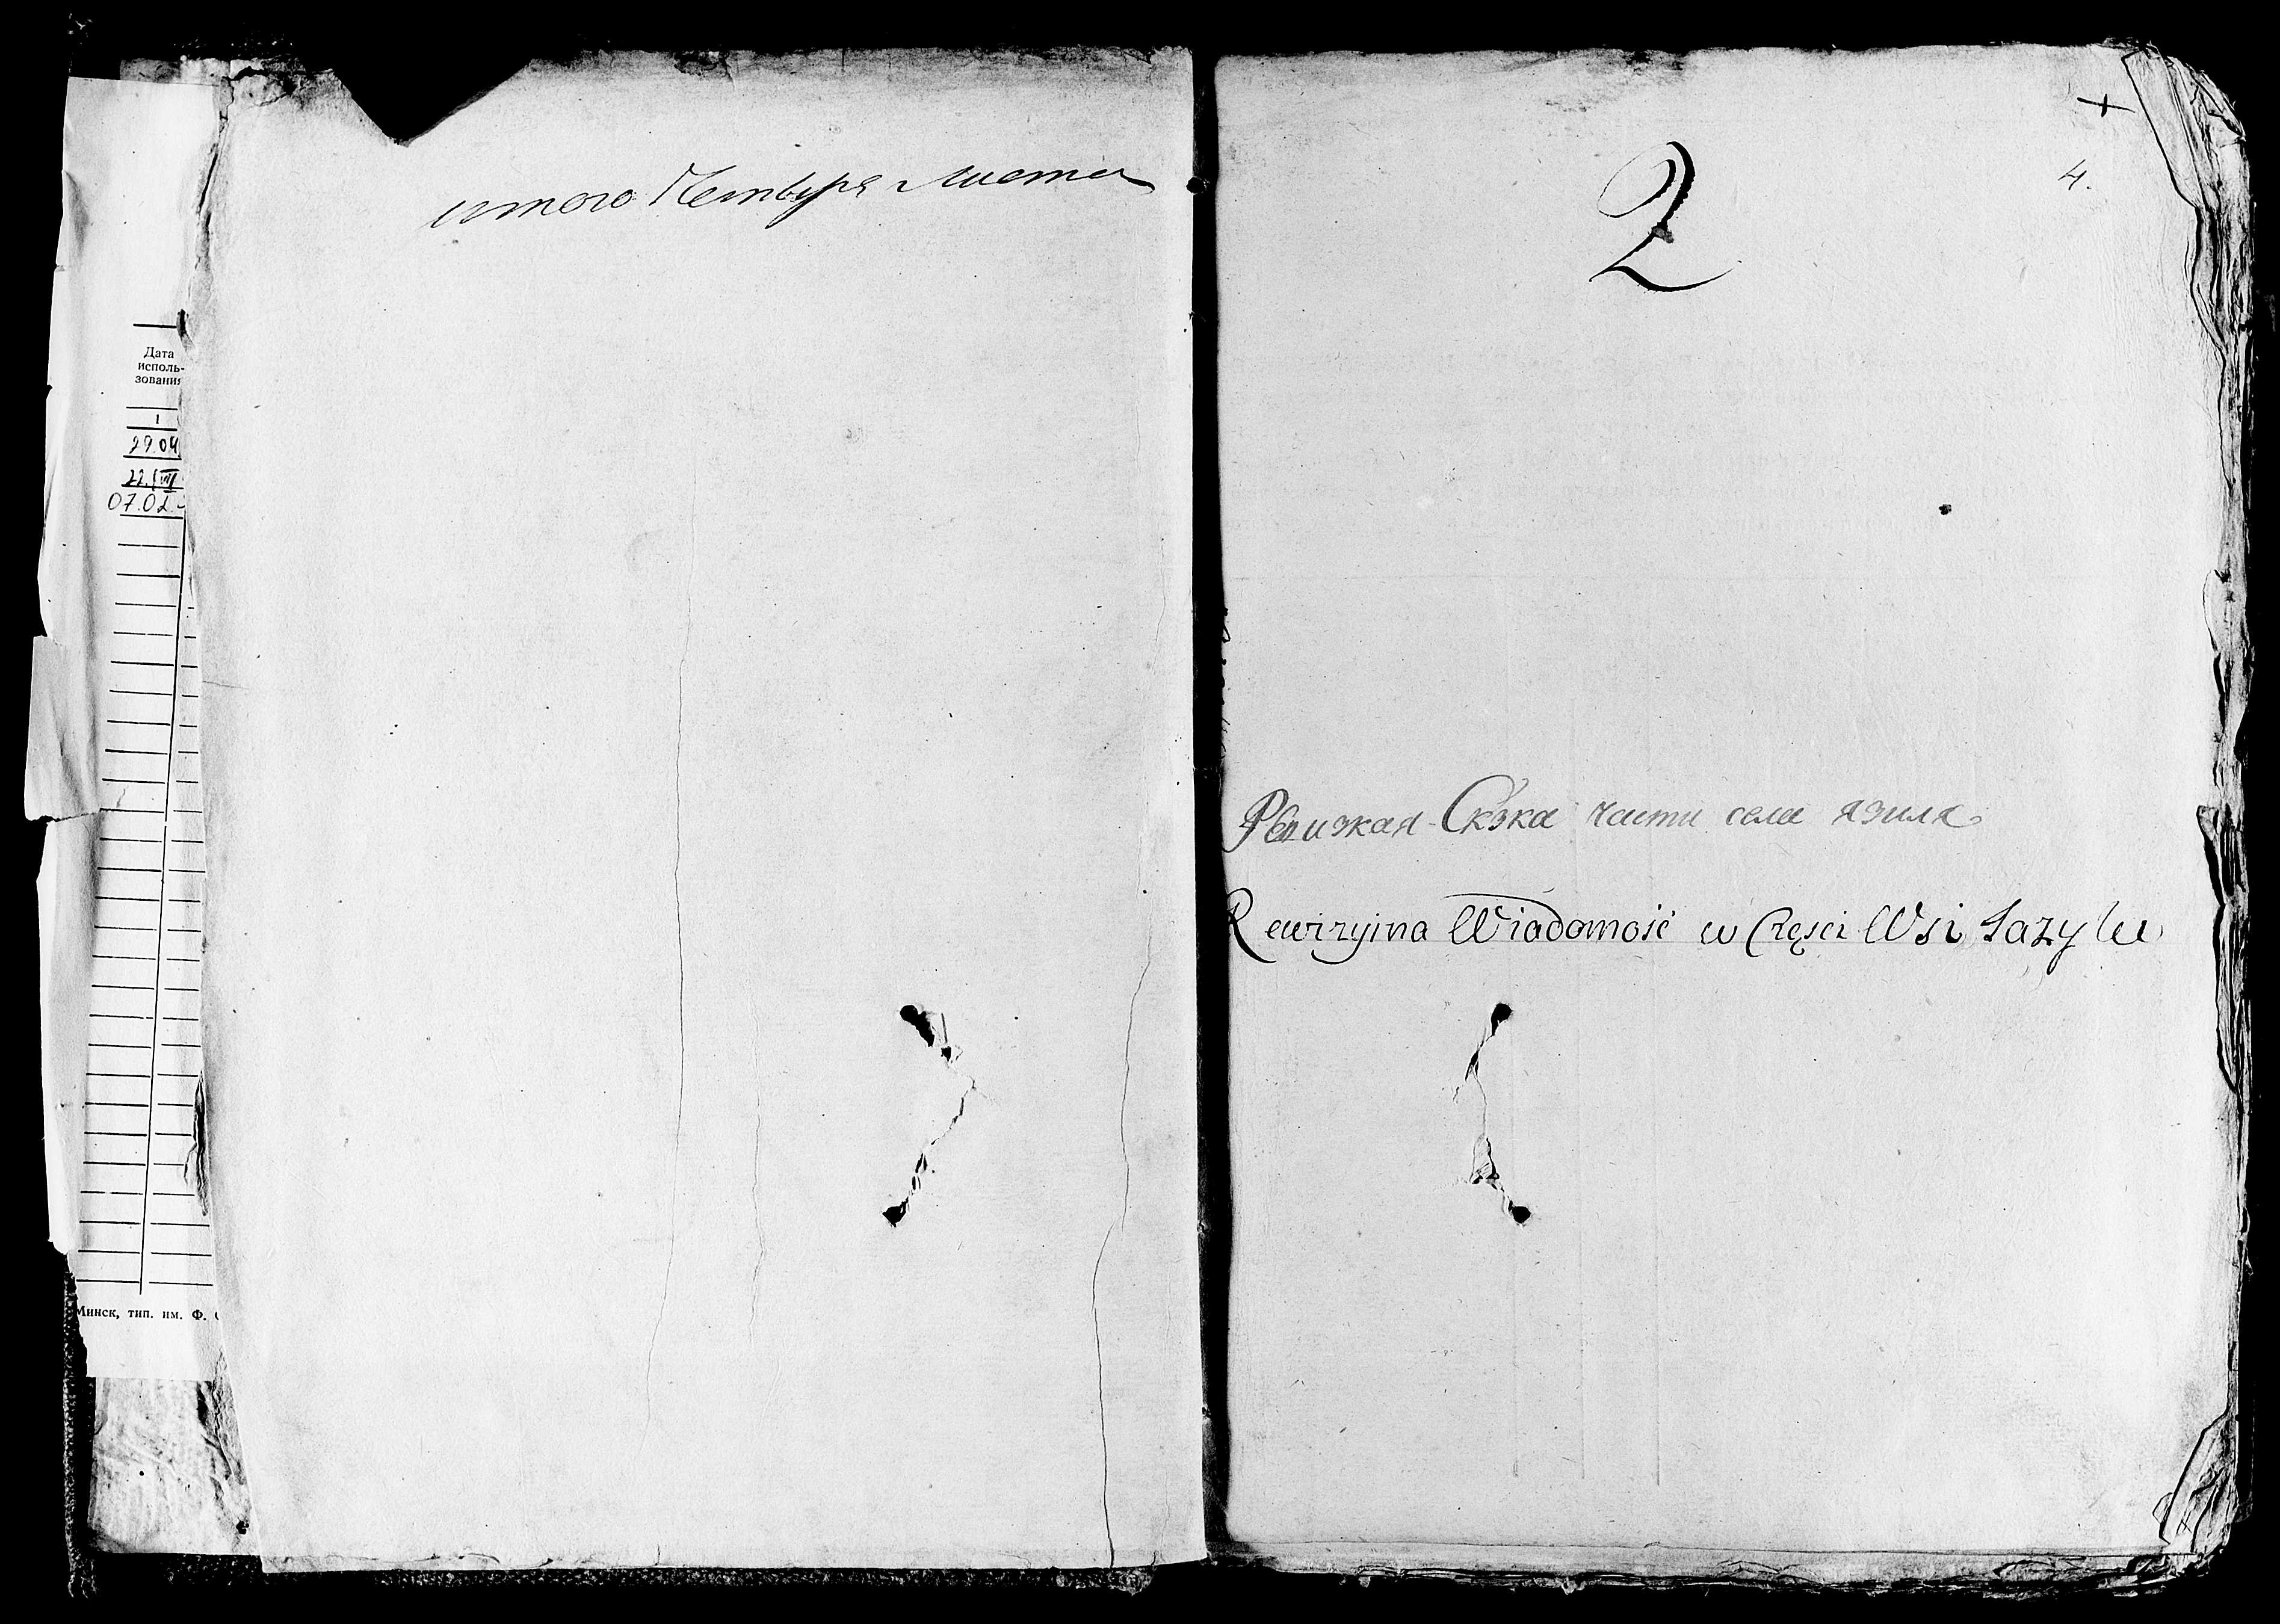 Дата
исполь-
зования
1
29.04
22.VII
07.02.
Минск, тип. им. Ф.
итого Четыре листа
+
4.
2
Ревизкая Скзка части села язиля
Rewizyina Wiadomość w Częsci Wsi Jazylu